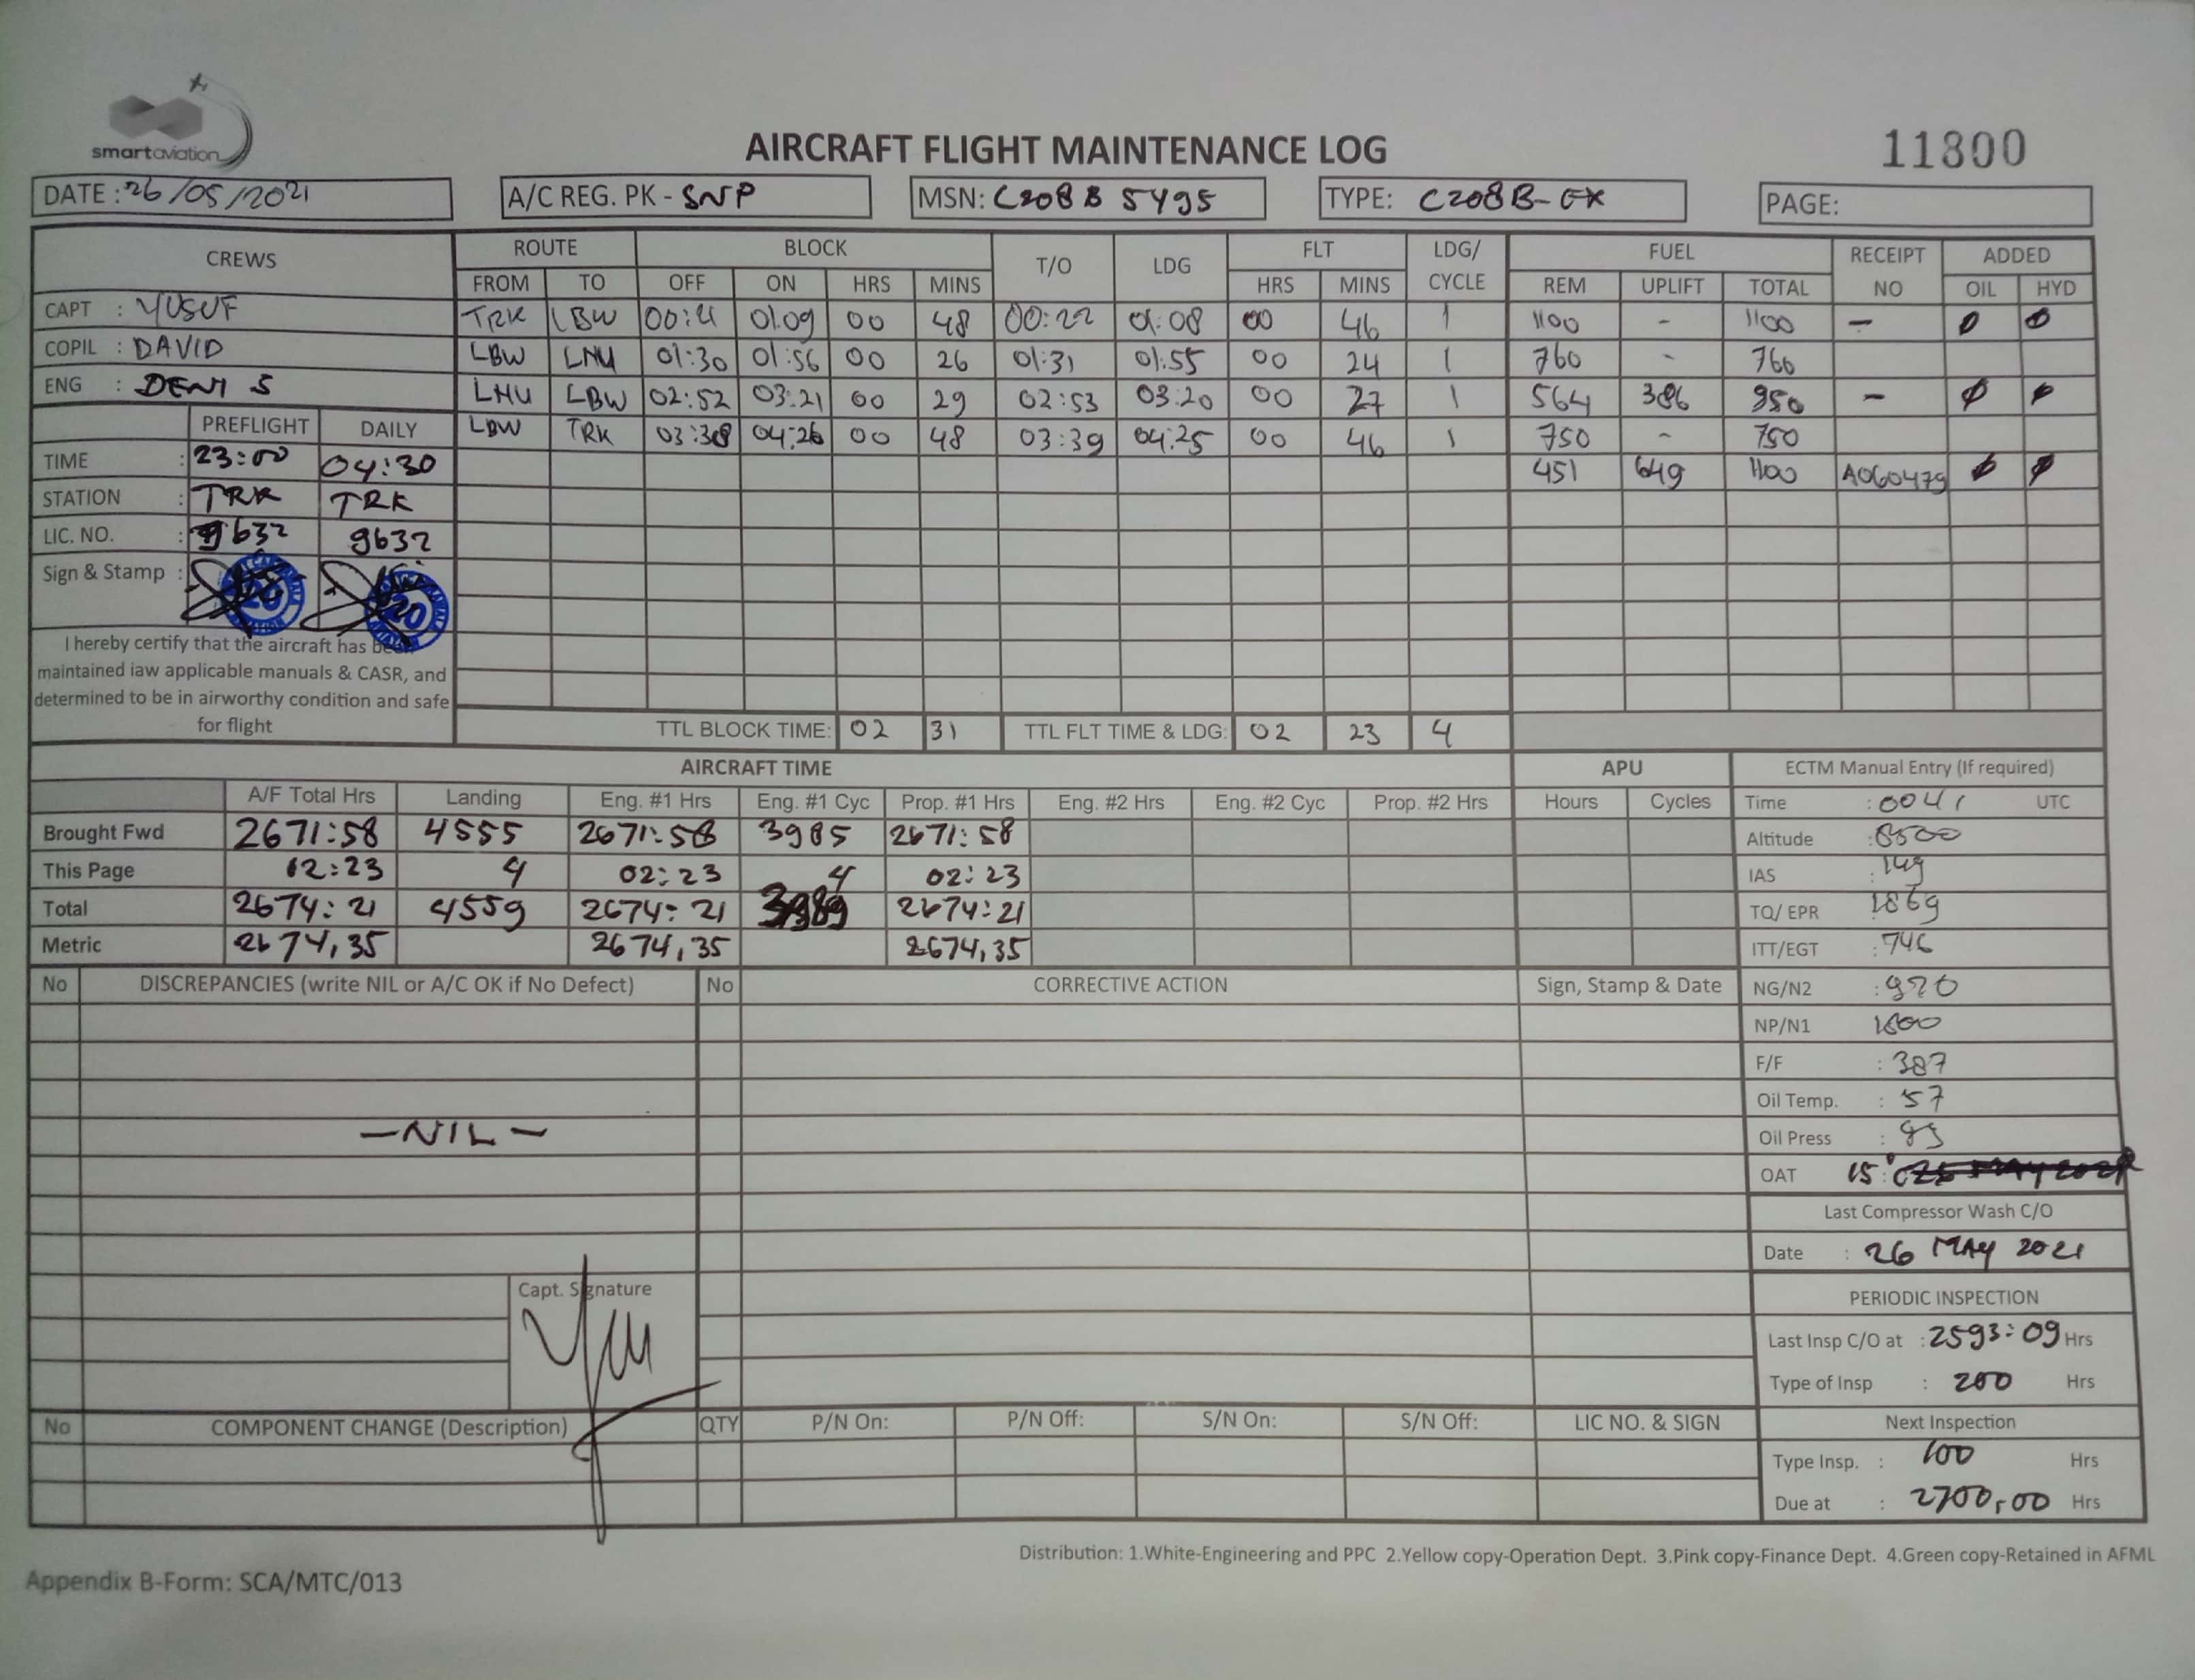 smartaviation
AIRCRAFT FLIGHT MAINTENANCE LOG
11800
DATE : 26/05/2021 A/C REG. PK - SNP MSN: C208B 5495 TYPE: C208B-EX PAGE:
CREWS ROUTE BLOCK T/O LDG FLT LDG/ CYCLE FUEL RECEIPT NO ADDED
FROM TO OFF ON HRS MINS HRS MINS REM UPLIFT TOTAL OIL HYD
CAPT : YUSUF TRK LBW 00:21 01.09 00 48 00:22 01:08 00 46 1 1100 - 1100 - 0 0
COPIL : DAVID LBW LNU 01:30 01:56 00 26 01:31 01:55 00 24 1 760 - 760
ENG : DENI S LNU LBW 02:52 03:21 00 29 02:53 03:20 00 27 1 564 386 950 - 0 0
PREFLIGHT DAILY LBW TRK 03:38 04:26 00 48 03:39 04:25 00 46 1 750 - 750
TIME : 23:00 04:30 451 649 1100 A060479 0 0
STATION : TRK TRK
LIC. NO. : 9632 9632
Sign & Stamp :
20 20
I hereby certify that the aircraft has been
maintained iaw applicable manuals & CASR, and
determined to be in airworthy condition and safe
for flight
TTL BLOCK TIME: 02 31 TTL FLT TIME & LDG: 02 23 4
AIRCRAFT TIME APU ECTM Manual Entry (If required)
A/F Total Hrs Landing Eng. #1 Hrs Eng. #1 Cyc Prop. #1 Hrs Eng. #2 Hrs Eng. #2 Cyc Prop. #2 Hrs Hours Cycles Time : 0041 UTC
Brought Fwd 2671:58 4555 2671:58 3985 2671:58 Altitude : 8500
This Page 02:23 4 02:23 4 02:23 IAS : 149
Total 2674:21 4559 2674:21 3989 2674:21 TQ/ EPR 1869
Metric 2674,35 2674,35 2674,35 ITT/EGT : 746
No DISCREPANCIES (write NIL or A/C OK if No Defect) No CORRECTIVE ACTION Sign, Stamp & Date NG/N2 : 970
NP/N1 1800
F/F : 387
Oil Temp. : 57
-NIL- Oil Press :
OAT 15°C
Last Compressor Wash C/O
Date : 26 MAY 2021
Capt. Signature
PERIODIC INSPECTION
Last Insp C/O at : 2593:09 Hrs
Type of Insp : 200 Hrs
No COMPONENT CHANGE (Description) QTY P/N On: P/N Off: S/N On: S/N Off: LIC NO. & SIGN Next Inspection
Type Insp. : 100 Hrs
Due at : 2700,00 Hrs
Distribution: 1.White-Engineering and PPC 2.Yellow copy-Operation Dept. 3.Pink copy-Finance Dept. 4.Green copy-Retained in AFML
Appendix B-Form: SCA/MTC/013